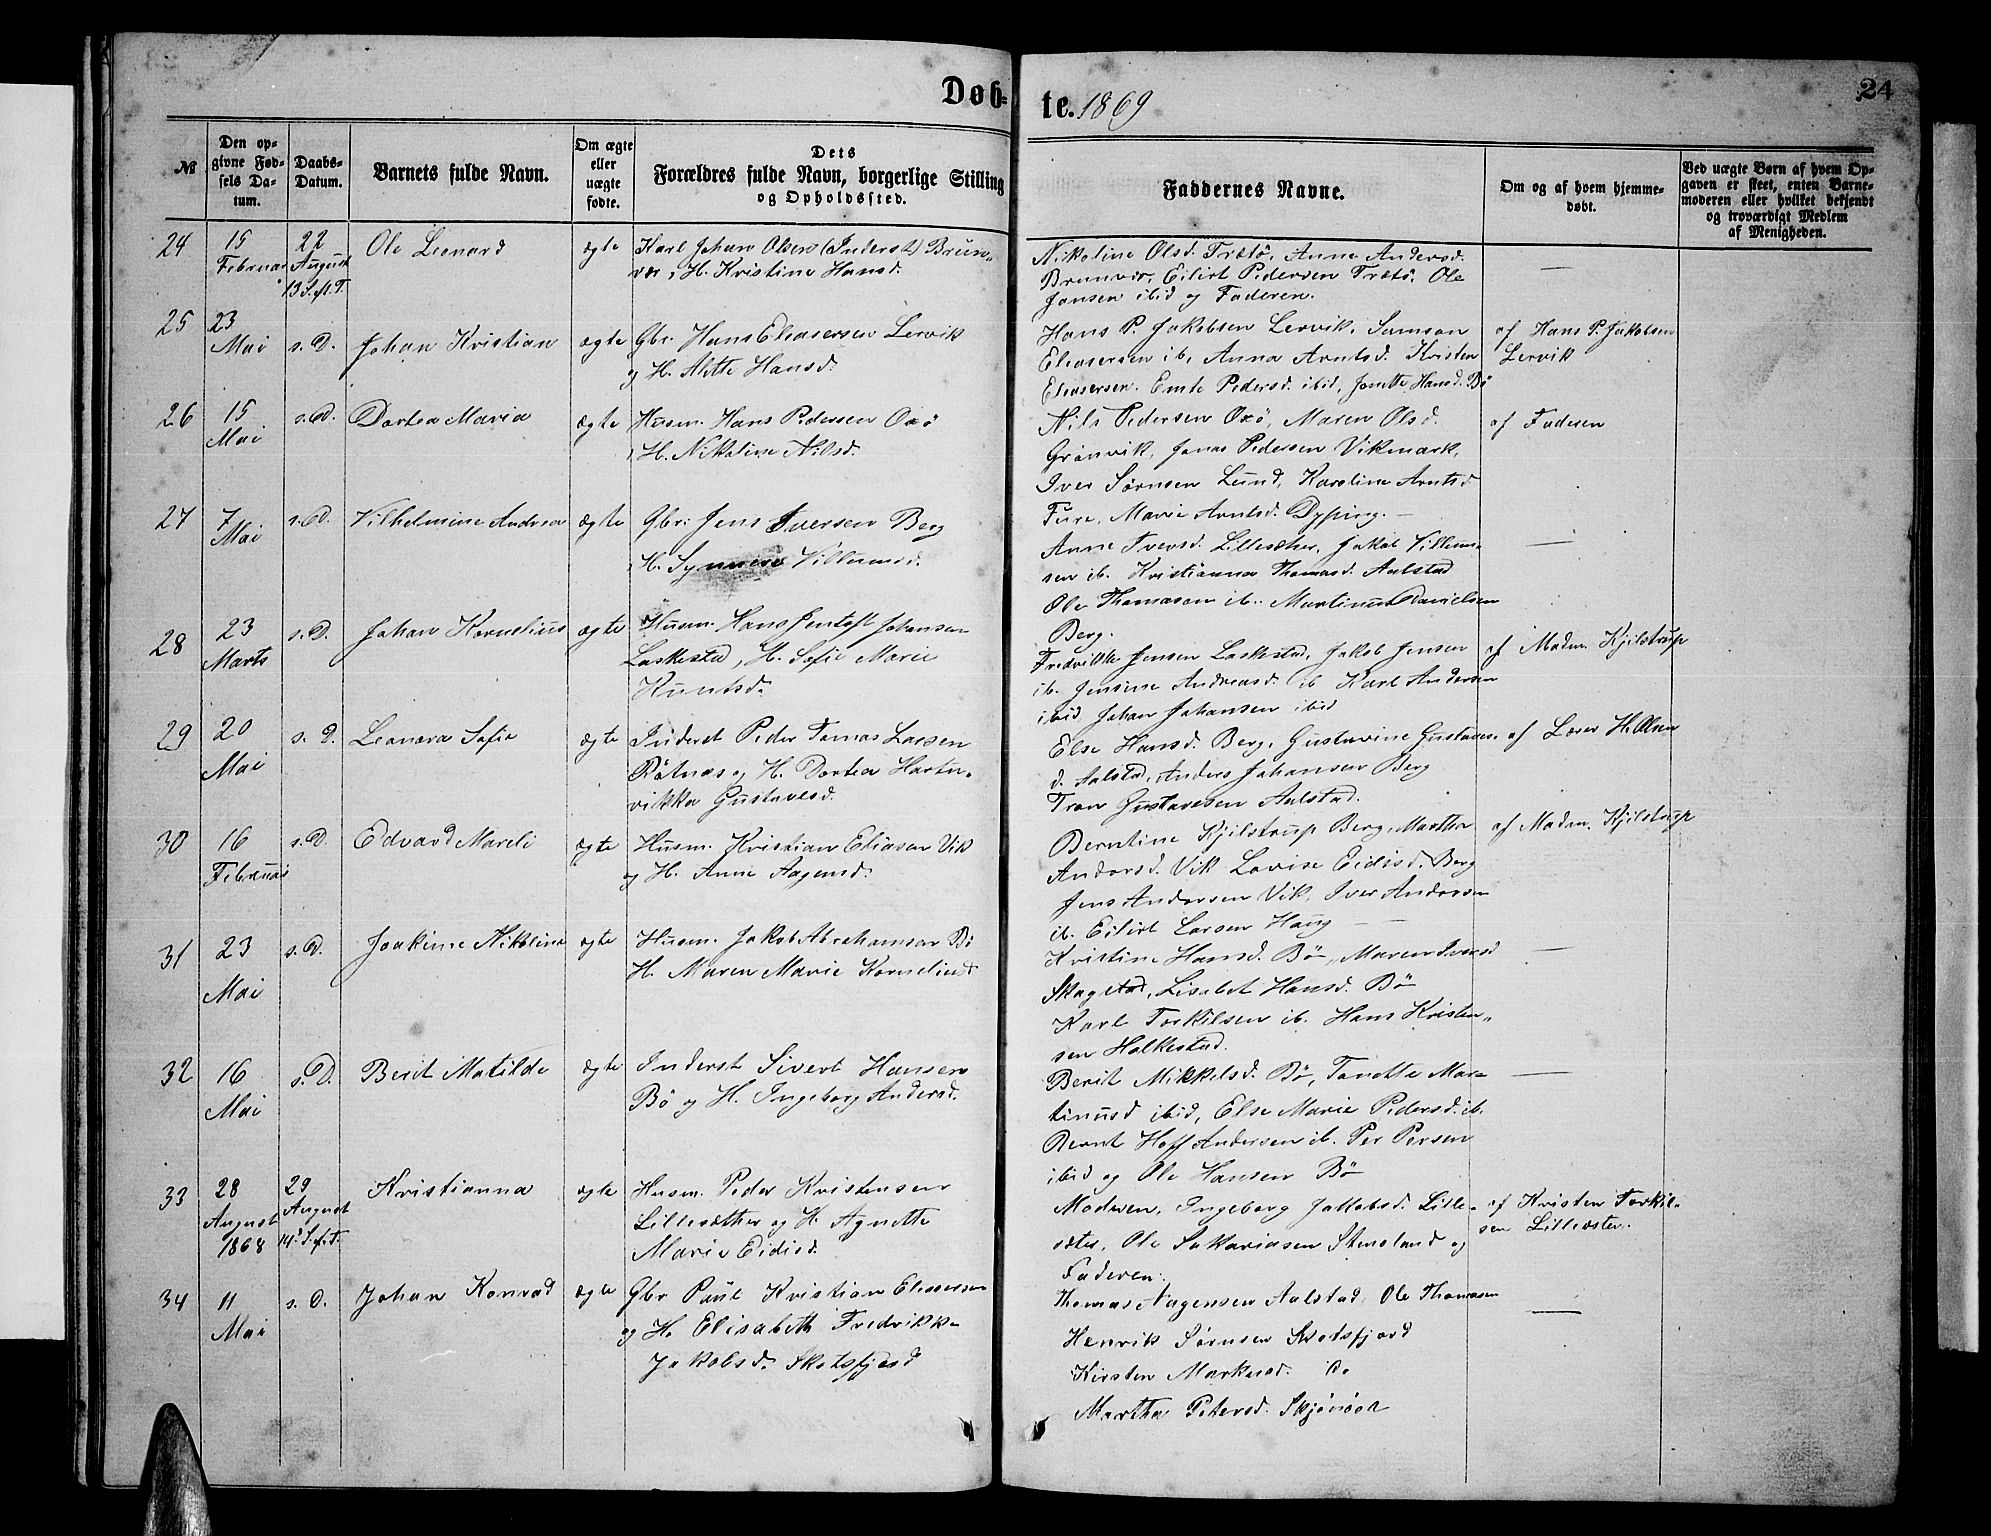 Døb-
te. 1869
24
№
Den op-
givne Fød-
sels Da-
tum.
Daabs-
Datum.
Barnets fulde Navn.
Om ægte
eller
uægte
fødte.
Dets
Forældres fulde Navn, borgerlige Stilling
og Opholdssted.
Faddernes Navne.
Om og af hvem hjemme-
døbt.
Ved uægte Børn af hvem Op-
gaven er skeet, enten Barne-
moderen eller hvilket bekjendt
og troværdigt Medlem
af Menigheden.
24
15
Februar
22
August
13 S. e. T.
Ole Leonard
ægte
Karl Johan Olsen (Inderst) Brun-
vær, H. Kristine Hansd.
Nikoline Olsd. Trætö, Anne Andersd.
Brunvær, Eilert Pedersen Trætö, Ole
Jonsen ibid og Faderen.
—
25
23
Mai
s. D.
Johan Kristian
ægte
Gbr. Hans Eleasersen Lervik
og H. Alette Hansd.
Hans P. Jakobsen Lervik, Samson
Eleasersen ib, Anna Arntsd. Kristen
Eleasersen. Emte Pedersd. ibid, Jonette Hansd. Bö
af Hans P. Jakobsen
Lervik
26
15
Mai
s. D.
Dortea Maria
ægte
Husm. Hans Pedersen Oxö
, H. Nikoline Nilsd.
Nils Pedersen Oxö, Maren Olsd.
Grönvik, Jonas Pedersen Vikmark,
Iver Sörnsen Lund, Karoline Arntsd
Fure, Marie Arntsd. Dyping. —
af Faderen
27
7
Mai
s. D.
Vilhelmine Andrea
ægte
Gbr. Jens Iversen Berg
, H. Synneve Villumsd.
Anne Iversd. Lillesæter, Jakob Villum-
sen ib. Kristianna Thomasd. Aalstad
Ole Thomasen ib. Martinus Danielsen
Berg.
—
28
23
Marts
s. D.
Johan Kornelius
ægte
Husm. Hans Jentoft Johansen
Laskestad, H. Sofie Marie
Kuntsd.
Fredrikke Jensen Laskestad, Jakob Jensen
ib. Jensine Andreasd. ib Karl Andersen
ibid Johan Johansen ibid
af Madm. Kjilstrup
29
20
Mai
s. D.
Leonora Sofie
ægte
Inderst Peder Tomas Larsen
Rötnes og H. Dortea Hartu-
vikka Gustavesd.
Else Hansd. Berg, Gustavine Gustaves-
d. Aalstad, Anders Johansen Berg
Tron Gustavesen Aalstad.
af Lærer H. Olsen
30
16
Februar
s. D.
Edvard Mareli
ægte
Husm. Kristian Eliasen Vik
og H. Anne Aagensd.
Berntine Kjilstrup Berg, Martha
Andersd. Vik Lovise Eidisd. Berg
Jens Andersen Vik, Iver Andersen
ib. Eilert Larsen Haug —
af Madm. Kjilstrup
31
23
Mai
s. D.
Joakime Nikoline
ægte
Husm. Jakob Abrahamsen Bö
H. Maren Marie Kornelusd
Kristine Hansd. Bö, Maren Iversd
Skagstad, Lisabet Hansd. Bö
Karl Torkilsen ib. Hans Kristen-
sen Holkestad.
—
32
16
Mai
s. D.
Berit Matilde
ægte
Inderst Sivert Hansen
Bö og H. Ingeborg Andersd.
Berit Mikkelsd. Bö, Tonette Mar-
tinusd ibid, Else Marie Pedersd. ib.
Bernt Hoff Andersen ib. Per Persen
ibid og Ole Hansen Bö
—
33
28
August
1868
29
August
14 S. e. T.
Kristianna
ægte
Husm. Peder Kristensen
Lillesæther og H. Agnette
Marie Eidisd.
Moderen, Ingeborg Jakobsd. Lille-
sæter, Ole Sakariasen Stensland og
Faderen.
af Kristen Torkil-
sen Lillesæter.
34
11
Mai
s. D.
Johan Konrad
ægte
Gbr Paul Kristian Eleasersen
og H. Elisabeth Fredrikke
Jakobsd. Skotsfjord
Thomas Aagensen Aalstad, Ole Thomasen
Henrik Sörnsen Skotsfjord
Kirsten Markusd. Do
Martha Petersd. Skjönöen
—